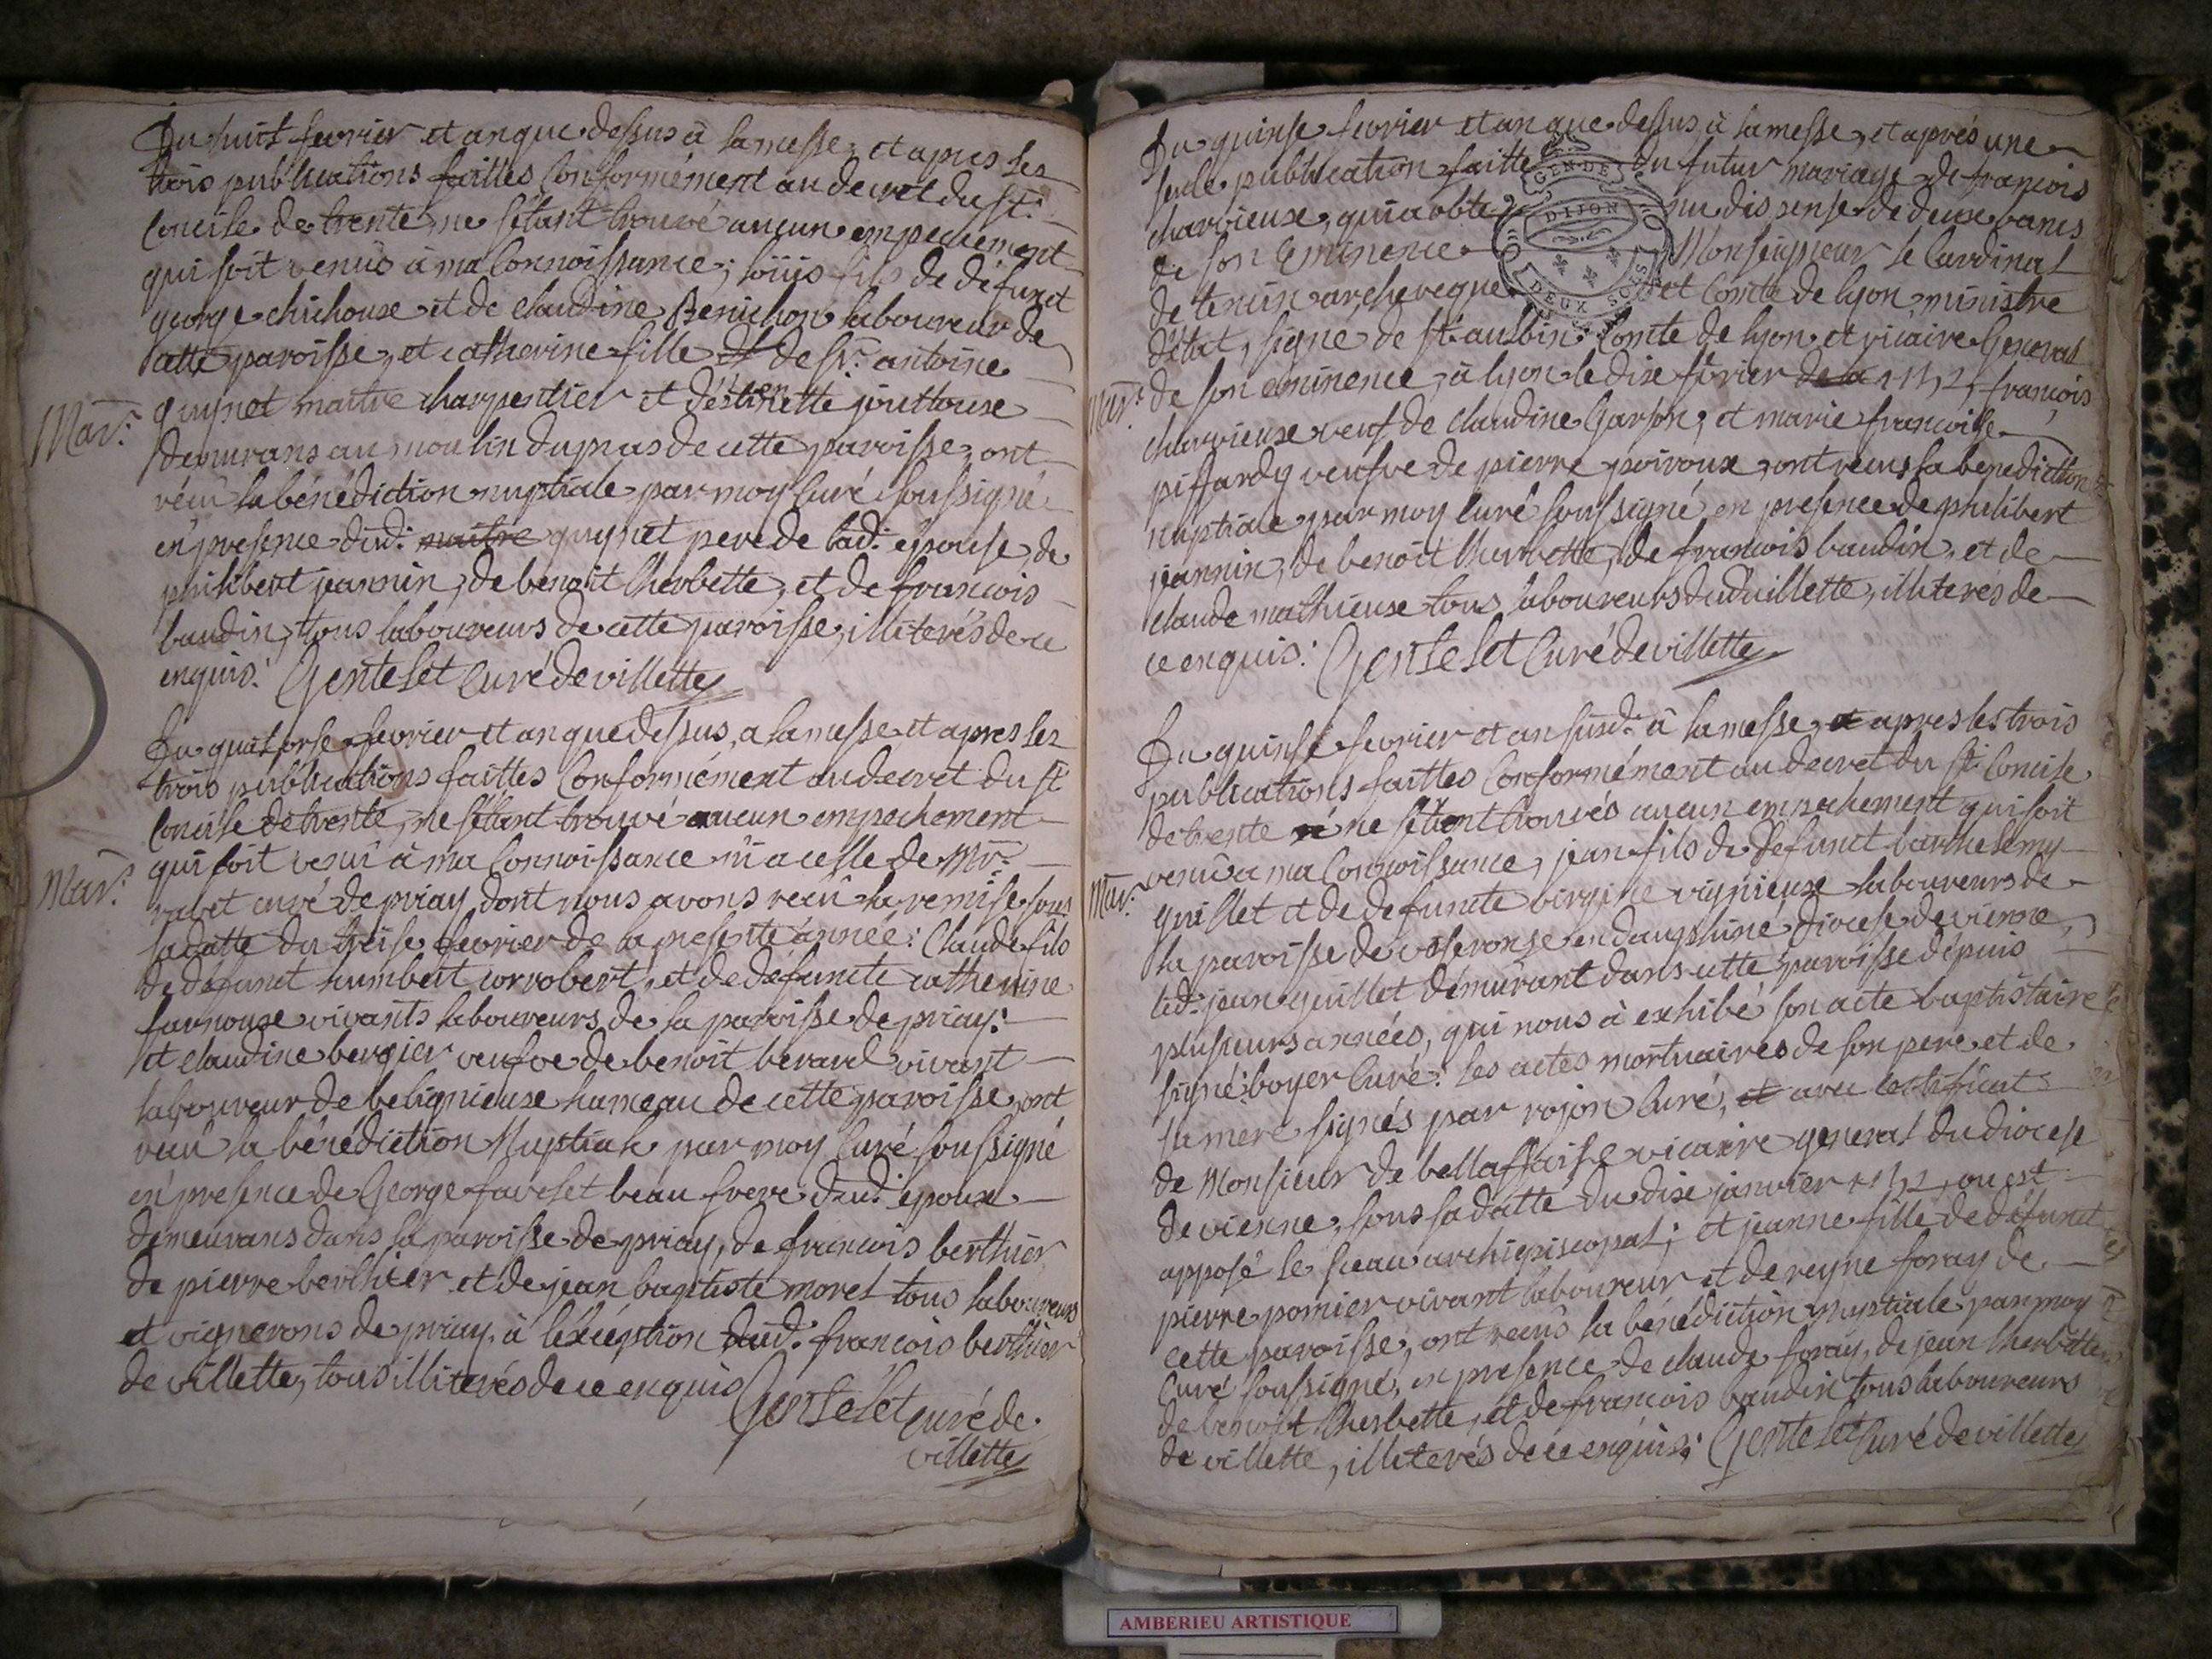 Du huit fevrier et an que dessus à la messe, et apres les
trois publications faittes Conformément au decret du st.
Concile de trente, ne s'étant trouvé aucun empechement
qui soit venüs à ma Connoissance; loüis fils de défunct
george chichoux et de claudine Benichon laboureur de
cette paroisse, et catherine fille de sr. antoine
Mar: guynet maitre charpentier et d'estiennette jouttoux
demurans au moulin du pras de cette paroisse, ont
réçû la bénédiction nuptiale par moy Curé soussigné
en presence dud: maitre guynet pere de lad: epouse, de
philibert jeannin, de benoit Cherbette, et de francois
baudin, tous laboureurs de cette paroisse, illiterés de ce
enquis. Gentelet Curé de villette
Du quatorse fevrier et an que dessus, a la messe et apres les
trois publications faittes Conformément au decret du st
Concile de trente, ne s'étant trouvé aucun empechement
qui soit venû à ma Connoissance ni a celle de Mr.
Mar: rabet curé de priay dont nous avons reçû la remise sous
sa datte du treise fevrier de la presente année: Claude fils
de defunct humbert corrobert, et de défuncte catherine
farnoux vivants laboureurs de la paroisse de priay:
et claudine bergier veufve de benoit berard vivant
laboureur de belignieux hameau de cette paroisse, ont
reçû la bénédiction Nuptiale par moy Curé soussigné
en presence de George favelet beau frere dud: epoux
demeurans dans la paroisse de priay, de francois berthier
de pierre berthier et de jean baptiste morel tous laboureurs
et vignerons de priay, à l'éxception dud: francois berthier
de villette, tous illiterés de ce enquis Gentelet curé de
villette
Du quinse fevrier et an que dessus, à la messe, et aprés une
seule publication faitte du futur mariage de francois
charvieux, qui a obtenu dispense de deux bancs
de son Eminence Monseigneur le Cardinal
de tencin archeveque et Comte de lyon ministre
d'état, signé de st. aulbin Comte de lyon et vicaire General
Mar: de son eminence, à lyon le dix février 1752, françois
charvieux veuf de claudine Garson, et marie francoise
piffardy veufve de pierre poiroux, ont reçus la bénédiction
nuptiale par moy Curé soussigné en presence de philibert
jeannin, de benoit Cherbette, de francois baudin, et de
claude mathieux tous laboureurs dud villette, illiterés de
ce enquis: Gentelet Curé de villette
Du quinse fevrier et an susd: à la messe, et apres les trois
publications faittes Conformément au decret du st. Concile
de trente ne s'étant trouvés aucun empechement qui soit
venû a ma Connoissance, jean fils de defunct barthelemy
Mar: guillet et de defuncte virgine vignieux laboureurs de
la paroisse de veseronse en dauphiné diocese de vienne,
led: jean guillet démurant dans cette paroisse dépuis
plusieurs années, qui nous à exhibé son acte baptistaire
signé: boyer Curé: les actes mortuaires de son pere et de
sa mere signés par rojon Curé, et avec certificat
de Monsieur de bellaffaise vicaire general du diocese
de vienne, sous sa datte du dix janvier 1752, ou est
apposé le sceau archiepiscopal; et jeanne fille de défunct
pierre pomier vivant laboureur et de reyne foray de
cette paroisse, ont reçûs la bénédiction nuptiale par moy
Curé soussigné, en presence de claude foray, de jean Cherbette
de benoit Cherbette, et de francois baudin tous laboureurs
de villette, illiterés de ce enquis: Gentelet Curé de villette
GEN DE
DIJON
DEUX SOLS
AMBERIEU ARTISTIQUE